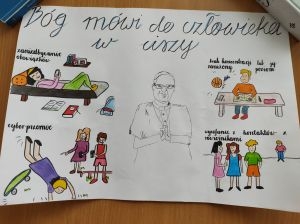 Bóg mówi do człowieka
w ciszy
zaniedbywanie
obowiązków
brak koncentracji lub jej
poziom
cyber przemoc
kontaktów z
rówieśnikami